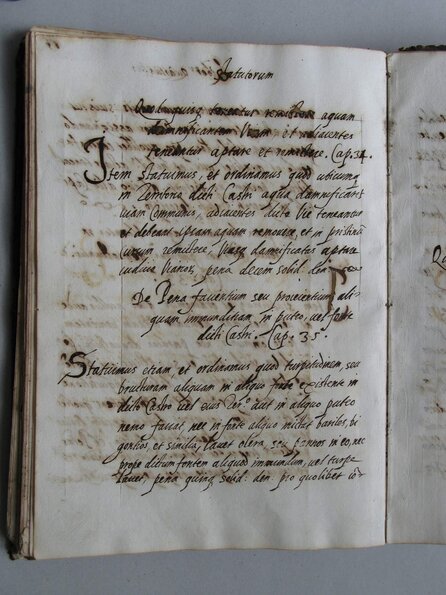 Statutorum
aquam
damnificantem Viam, et adiacentes
teneantur aptare et remittere. Cap. 34.
Item Statuimus, et ordinamus quod ubicunq
in Territorio dicti Castri aqua damnificaret
viam Communis, adiacentes dictæ Viæ teneantur
et debeant ipsam aquam removere, et in pristinũ
cursum remittere, Viasq damnificatas aptare
iudicio Viarior, pena decem solid. den
De Pena facientium seu proiicientium ali-
quam immunditiam, in puteo, vel fonte
dicti Castri. Cap. 35.
Statuimus etiam et ordinamus quod turpitudinem, seu
brutturam aliquam in aliquo fonte existente in
dicto Castro vel eius aut in aliquo puteo
nemo faciat, nec in fonte aliquo mittat bariles, bi
gentios, et similia, lavet olera, seu pannos in eo, nec
prope dictum fontem aliquod immundum, vel turpe
lavet, pena quinq solid: den. pro quolibet